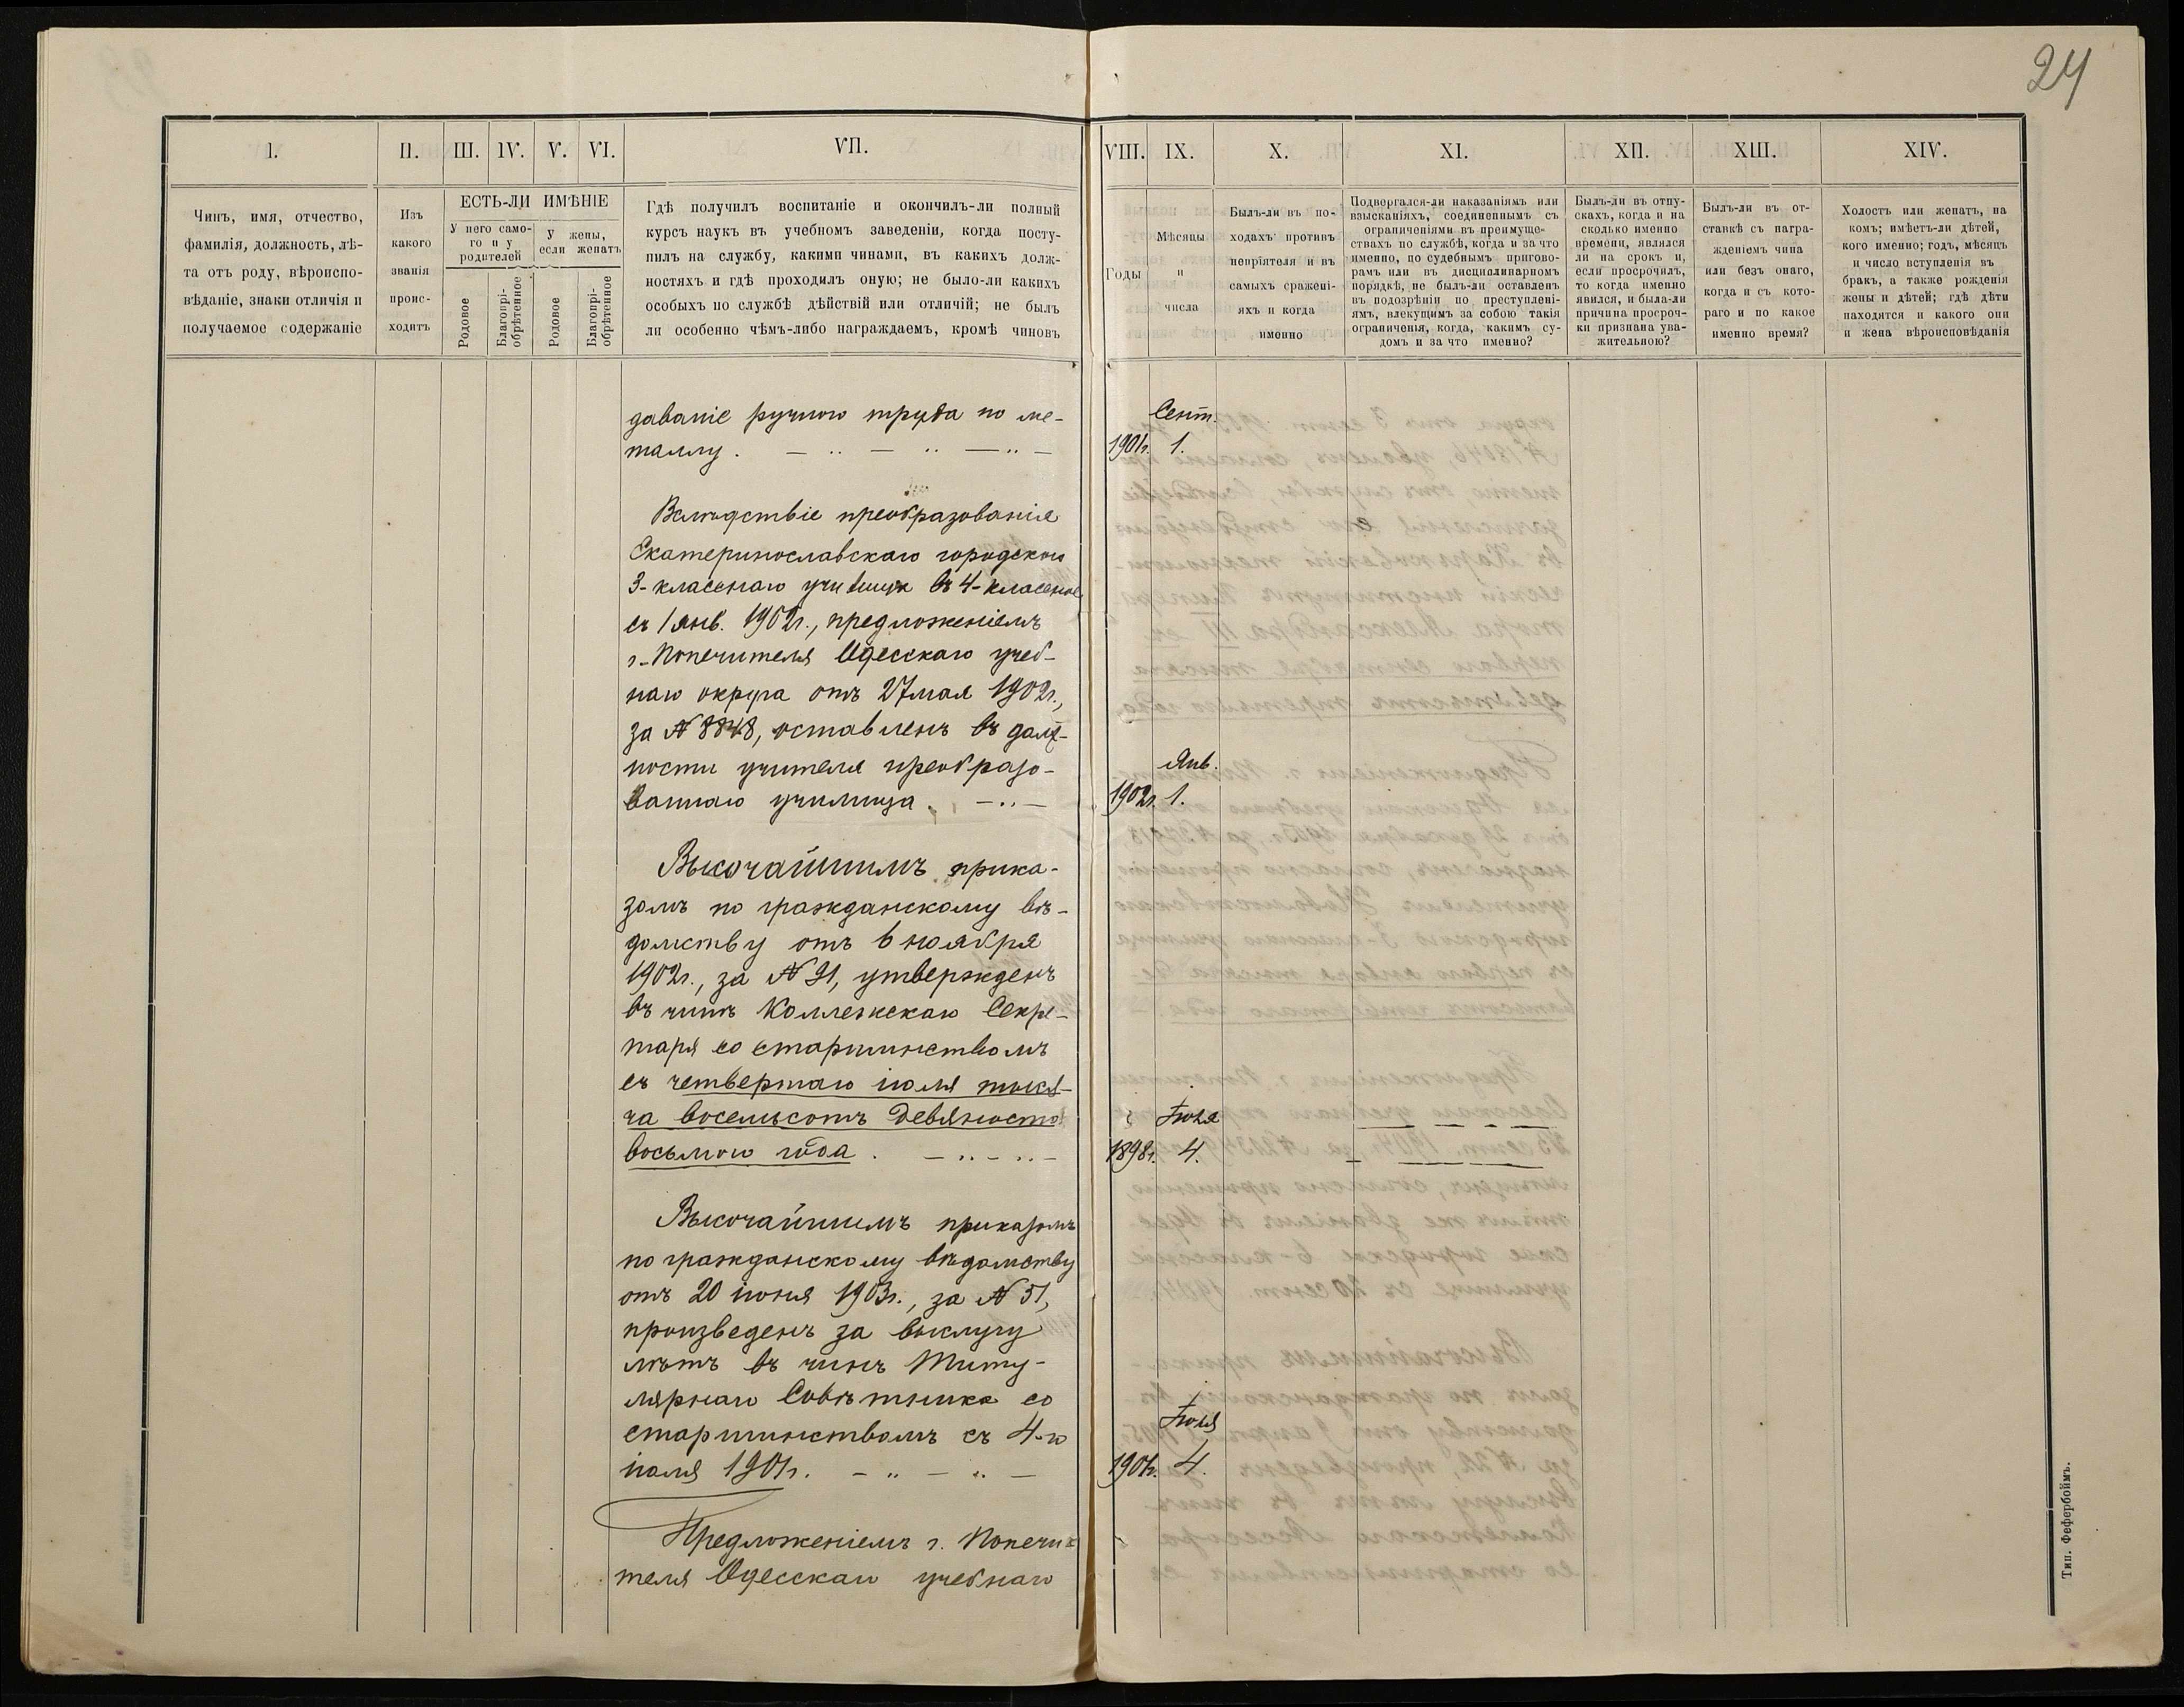 24
I.
II.
III.
IV.
V.
VI.
VII.
VIII.
IX.
X.
XI.
XII.
XIII.
XIV.
Чинъ, имя, отчество,
фамилія, должность, лѣ-
та отъ роду, вѣроиспо-
вѣданіе, знаки отличія и
получаемое содержаніе
Изъ
какого
званія
проис-
ходитъ
ЕСТЬ-ЛИ ИМѢНІЕ
У него само-
го и у
родителей
У жены,
если женатъ
Родовое
Благопрі-
обрѣтенное
Родовое
Благопрі-
обрѣтенное
Гдѣ получилъ воспитаніе и окончилъ-ли полный
курсъ наукъ въ учебномъ заведеніи, когда посту-
пилъ на службу, какими чинами, въ какихъ долж-
ностяхъ и гдѣ проходилъ оную; не было-ли какихъ
особыхъ по службѣ дѣйствій или отличій; не былъ
ли особенно чѣмъ-либо награждаемъ, кромѣ чиновъ
Годы
Мѣсяцы
и
числа
Былъ-ли въ по-
ходахъ противъ
непріятеля и въ
самыхъ сражені-
яхъ и когда
именно
Подвергался-ли наказаніямъ или
взысканіяхъ, соединеннымъ съ
ограниченіями въ преимуще-
ствахъ по службѣ, когда и за что
именно, по судебнымъ пригово-
рамъ или въ дисциплинарномъ
порядкѣ, не былъ-ли оставленъ
въ подозрѣніи по преступлені-
ямъ, влекущимъ за собою такія
ограниченія, когда, какимъ су-
домъ и за что именно?
Былъ-ли въ отпу-
скахъ, когда и на
сколько именно
времени, являлся
ли на срокъ и,
если просрочилъ,
то когда именно
явился, и была-ли
причина просроч-
ки признана ува-
жительною?
Былъ-ли въ от-
ставкѣ съ награ-
жденіемъ чина
или безъ онаго,
когда и съ кото-
раго и по какое
именно время?
Холостъ или женатъ, на
комъ; имѣетъ-ли дѣтей,
кого именно; годъ, мѣсяцъ
и число вступленія въ
бракъ, а также рожденія
жены и дѣтей; гдѣ дѣти
находятся и какого они
и жена вѣроисповѣданія
даваніе ручного труда по ме-
таллу.
Сент.
1901г. 1.
Вслѣдствіе преобразованія
Екатеринославскаго городского
3-класснаго училища въ 4-классное
съ 1 янв. 1902г., предложеніемъ
г. Попечителя Одесскаго учеб-
наго округа отъ 27 мая 1902г.,
за № 8848, оставленъ въ долж-
ности учителя преобразо-
ваннаго училища.
Янв.
1902г. 1.
Высочайшимъ прика-
зомъ по гражданскому вѣ-
домству отъ 6 ноября
1902г., за № 91, утвержденъ
въ чинѣ Коллежскаго Секре-
таря со старшинствомъ
съ четвертаго іюля тыся-
ча восемьсотъ девяносто
восьмого года.
Іюля
1898г. 4.
Высочайшимъ приказомъ
по гражданскому вѣдомству
отъ 20 іюня 1903г., за № 51,
произведенъ за выслугу
лѣтъ въ чинъ Титу-
лярнаго Совѣтника со
старшинствомъ съ 4-го
іюля 1901г.
Іюля
1901г. 4.
Предложеніемъ г. Попечи-
теля Одесскаго учебнаго
Тип. Фефербоймъ.